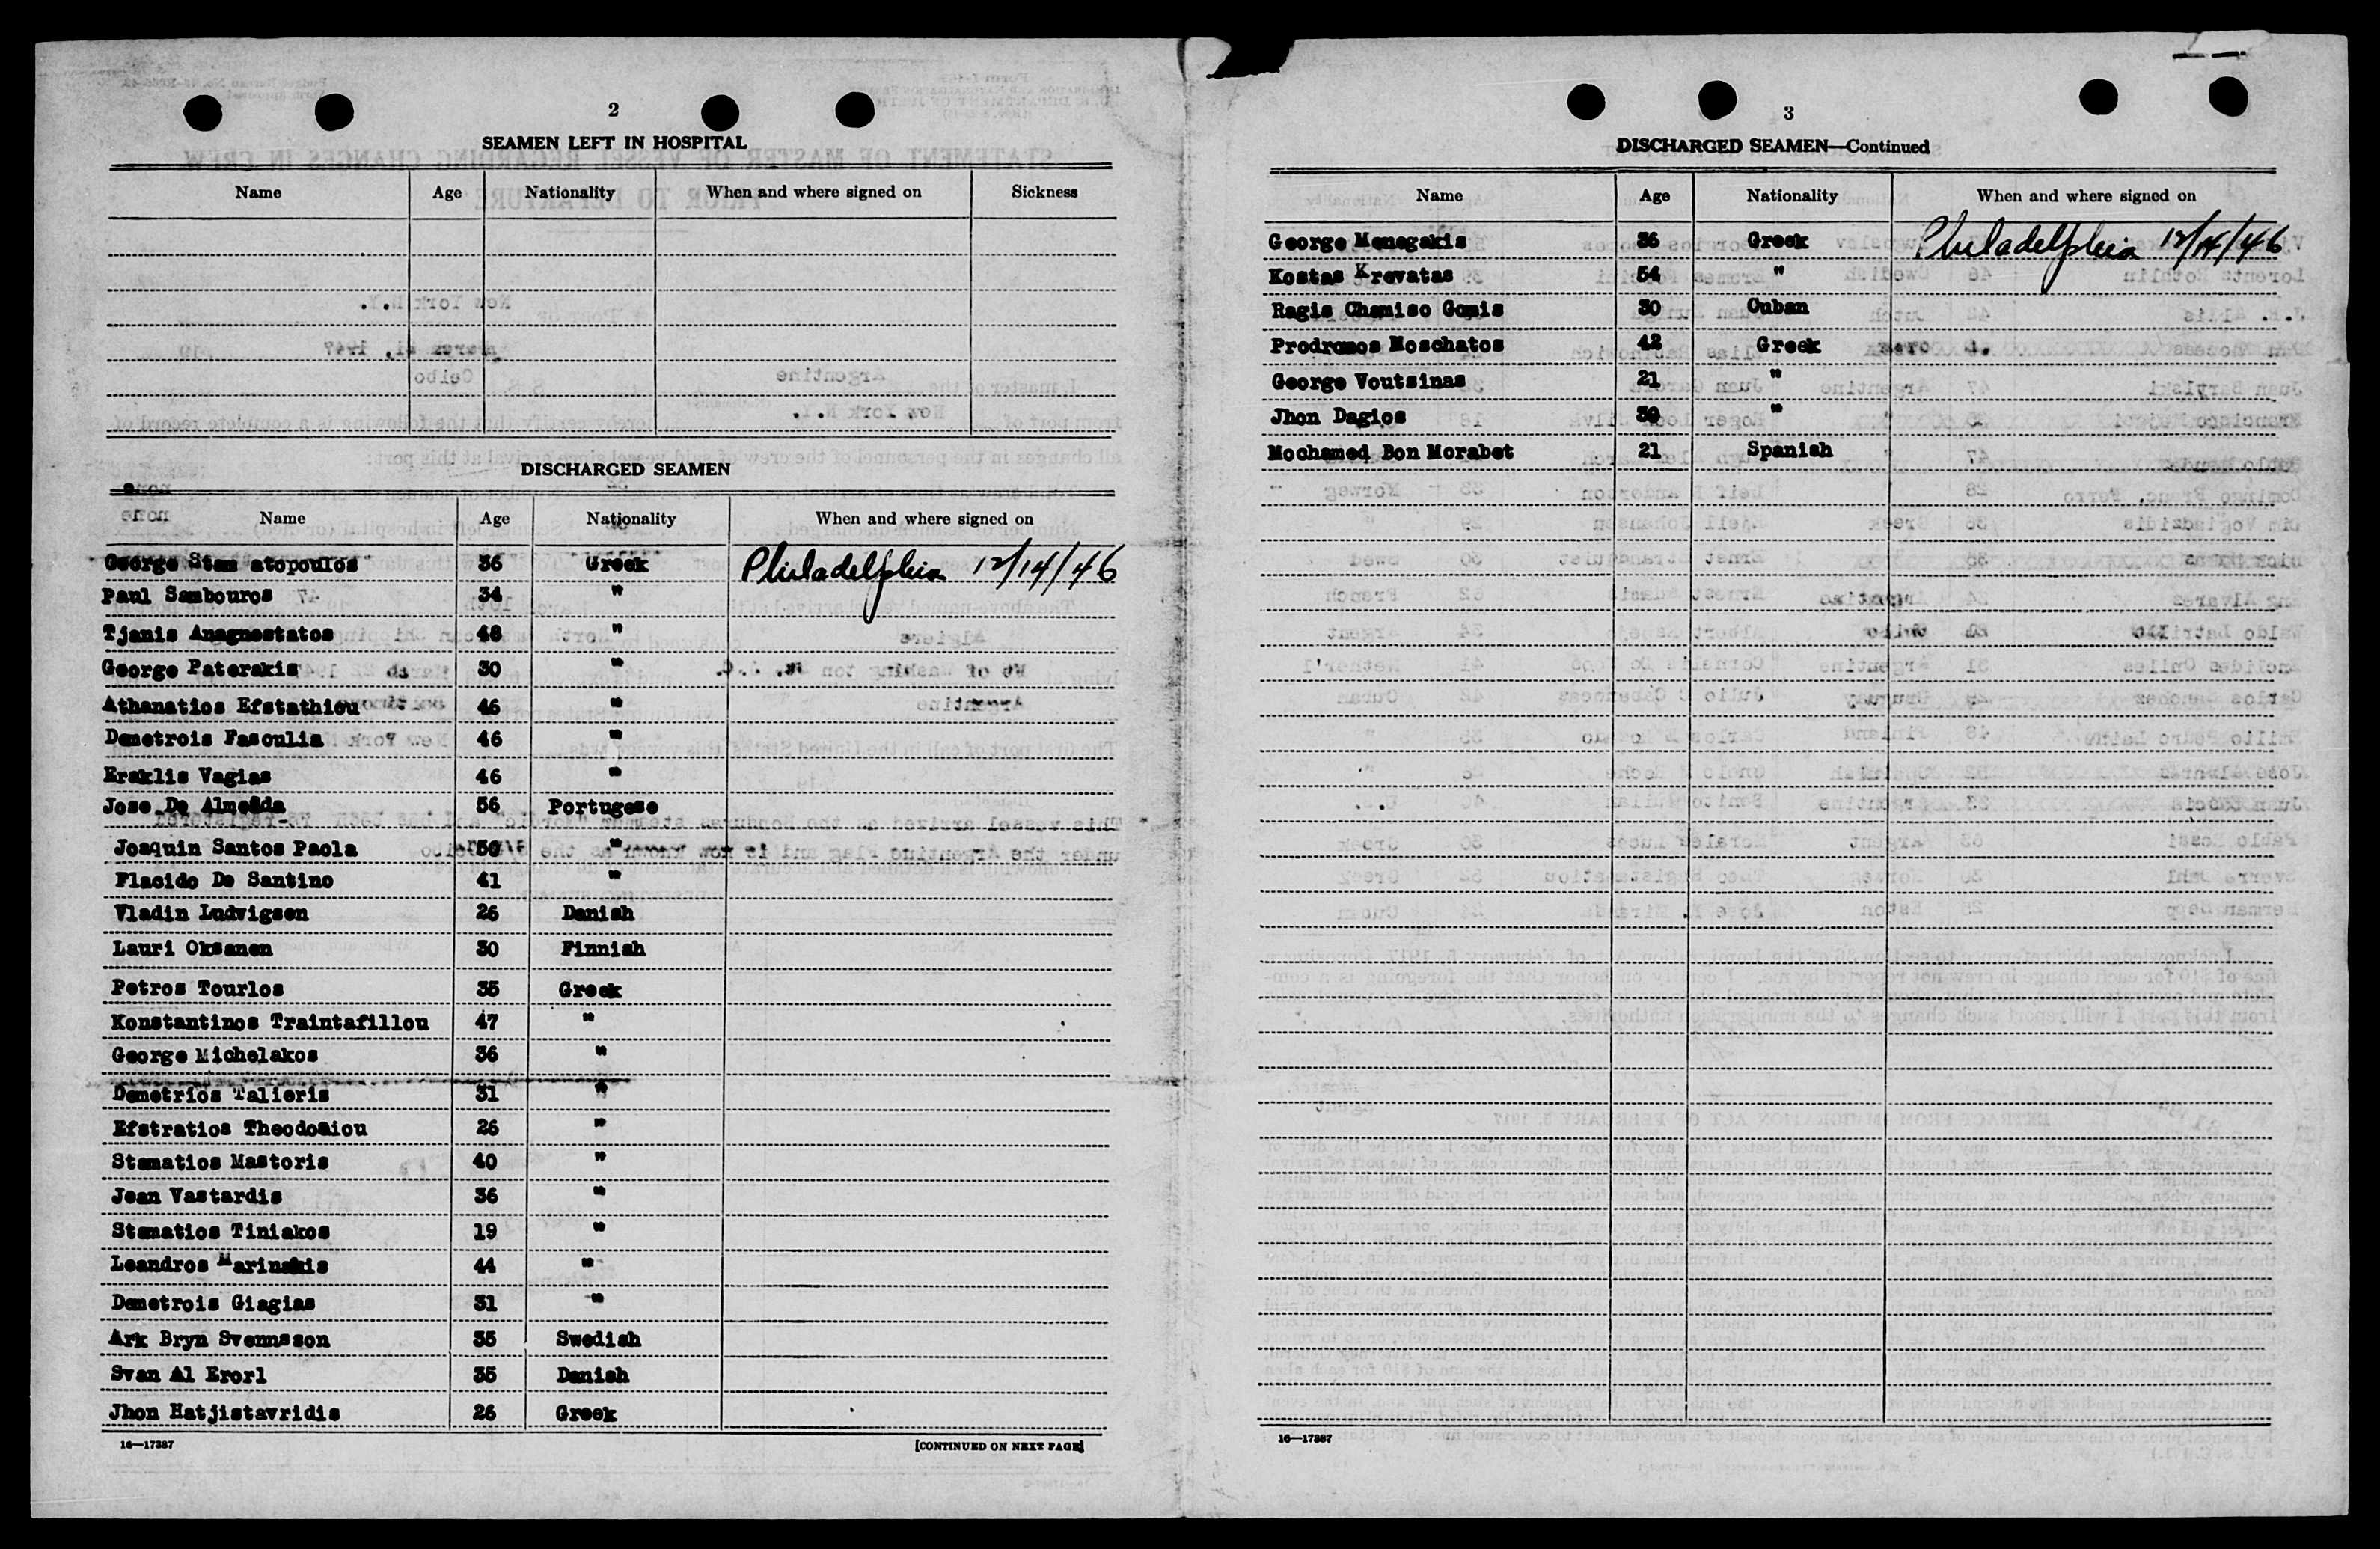 2
SEAMEN LEFT IN HOSPITAL
Name Age Nationality When and where signed on Sickness
DISCHARGED SEAMEN
Name Age Nationality When and where signed on
George Stam atopoulos 36 Greek Philadelphia 12/14/46
Paul Sambouros 34 "
Tjanis Anagnostatos 48 "
George Paterakis 30 "
Athanatios Efstathiou 46 "
Demetrois Fasoulia 46 "
Eraklis Vagias 46 "
Jose De Almeida 56 Portugese
Joaquin Santos Paola 50 "
Placido De Santino 41 "
Vladin Ludvigsen 26 Danish
Lauri Oksanen 30 Finnish
Petros Tourlos 35 Greek
Konstantinos Traintafillou 47 "
George Michelakos 36 "
Demetrios Talieris 31 "
Efstratios Theodosiou 26 "
Stamatios Mastoris 40 "
Jean Vastardis 36 "
Stamatios Tiniakos 19 "
Leandros Marinakis 44 "
Demetrois Giagias 31 "
Ark Bryn Svennsson 35 Swedish
Svan Al Erorl 35 Danish
Jhon Hatjistavridis 26 Greek
16—17387 [CONTINUED ON NEXT PAGE]
3
DISCHARGED SEAMEN—Continued
Name Age Nationality When and where signed on
George Menegakis 36 Greek Philadelphia 12/14/46
Kostas Krevatas 54 "
Ragis Chamiso Gomis 30 Cuban
Prodromos Moschatos 42 Greek
George Voutsinas 21 "
Jhon Dagios 39 "
Mochamed Bon Morabet 21 Spanish
16—17387